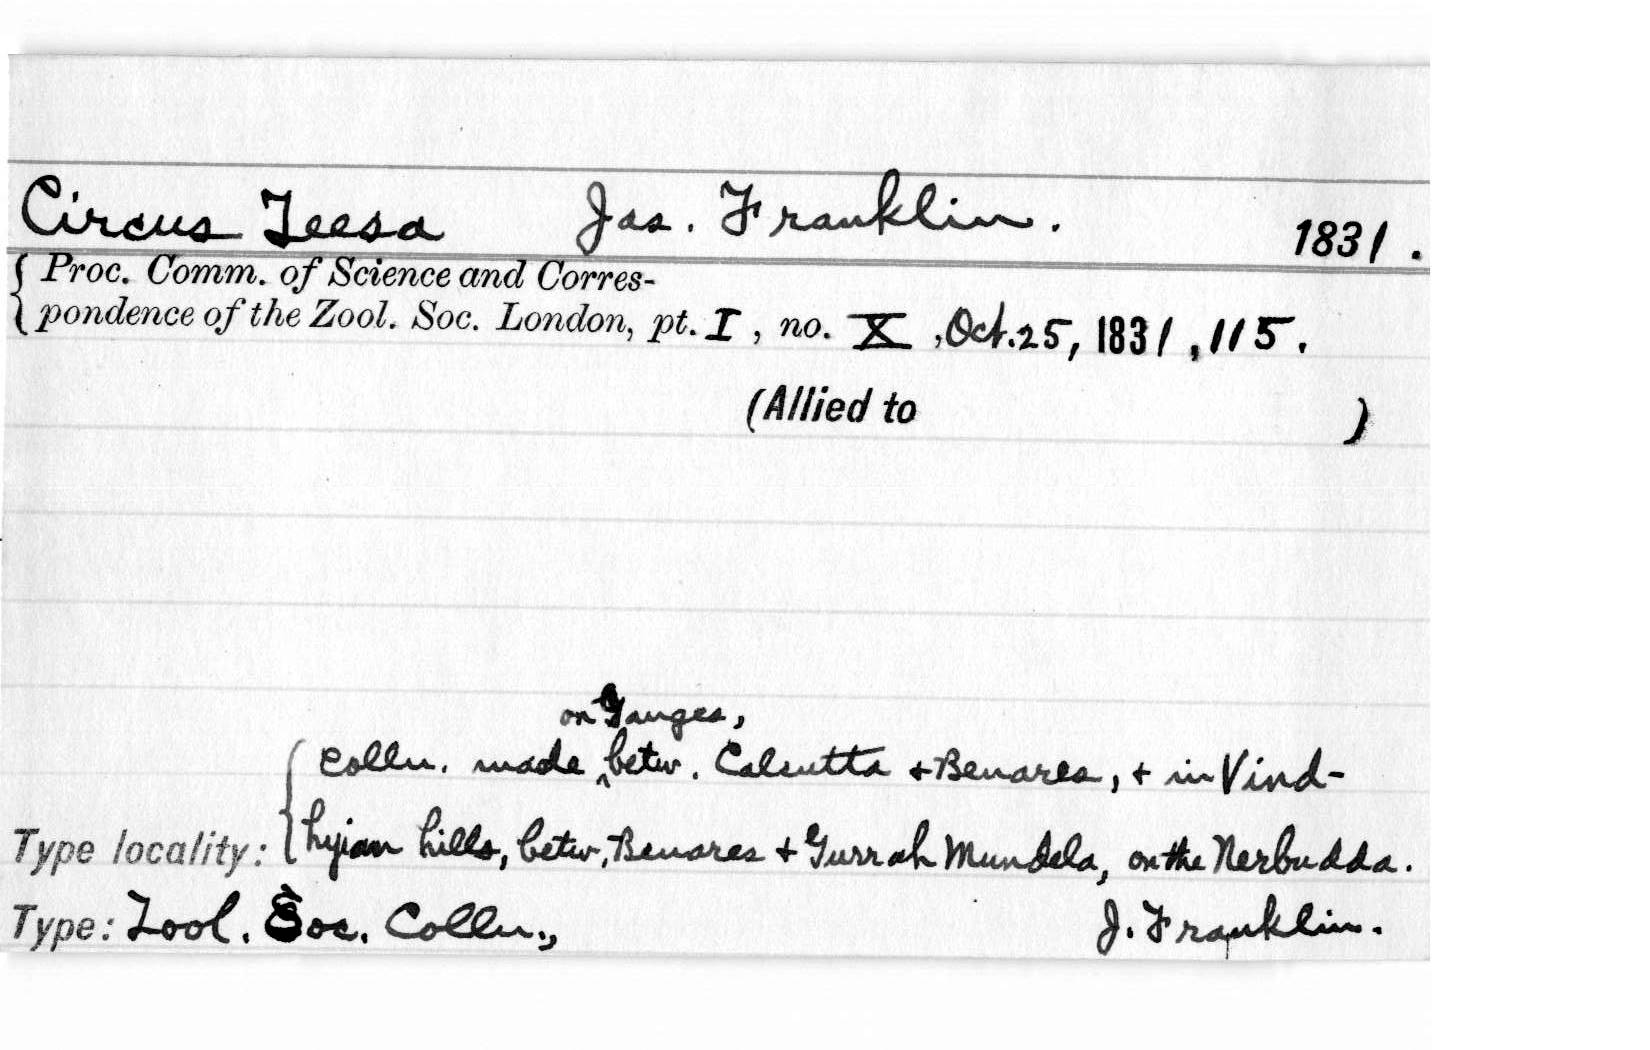 Circus Teesa Jas. Franklin. 1831.
Proc. Comm. of Science and Corres-
pondence of the Zool. Soc. London, pt. I, no. X, Oct. 25, 1831, 115.
(Allied to )
on Ganges,
Colln. made ‸ betw. Calcutta + Benares, + in Vind-
Type locality: hyian hills, betw. Benares + Gurrah Mundela, on the Nerbudda.
Type: Zool. Soc. Colln., J. Franklin.